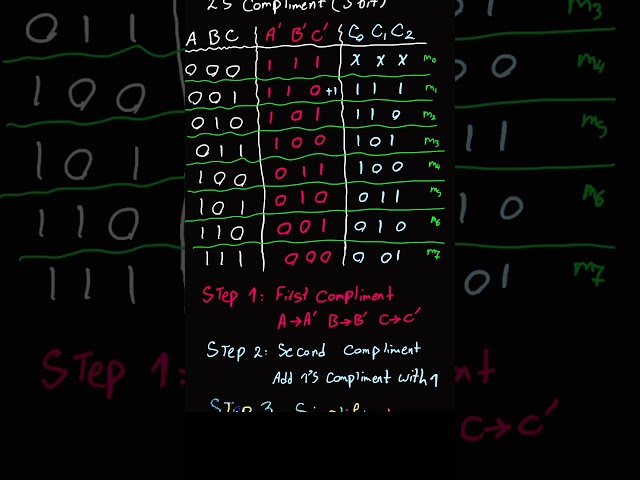 2's Compliment (3 bit)
A B C A' B' C' C₀ C₁ C₂
0 0 0 1 1 1 x x x m₀
0 0 1 1 1 0 +1 1 1 1 m₁
0 1 0 1 0 1 1 1 0 m₂
0 1 1 1 0 0 1 0 1 m₃
1 0 0 0 1 1 1 0 0 m₄
1 0 1 0 1 0 0 1 1 m₅
1 1 0 0 0 1 0 1 0 m₆
1 1 1 0 0 0 0 0 1 m₇
Step 1: First Compliment
A→A' B→B' C→C'
Step 2: Second Compliment
Add 1's Compliment with 1
Step 3